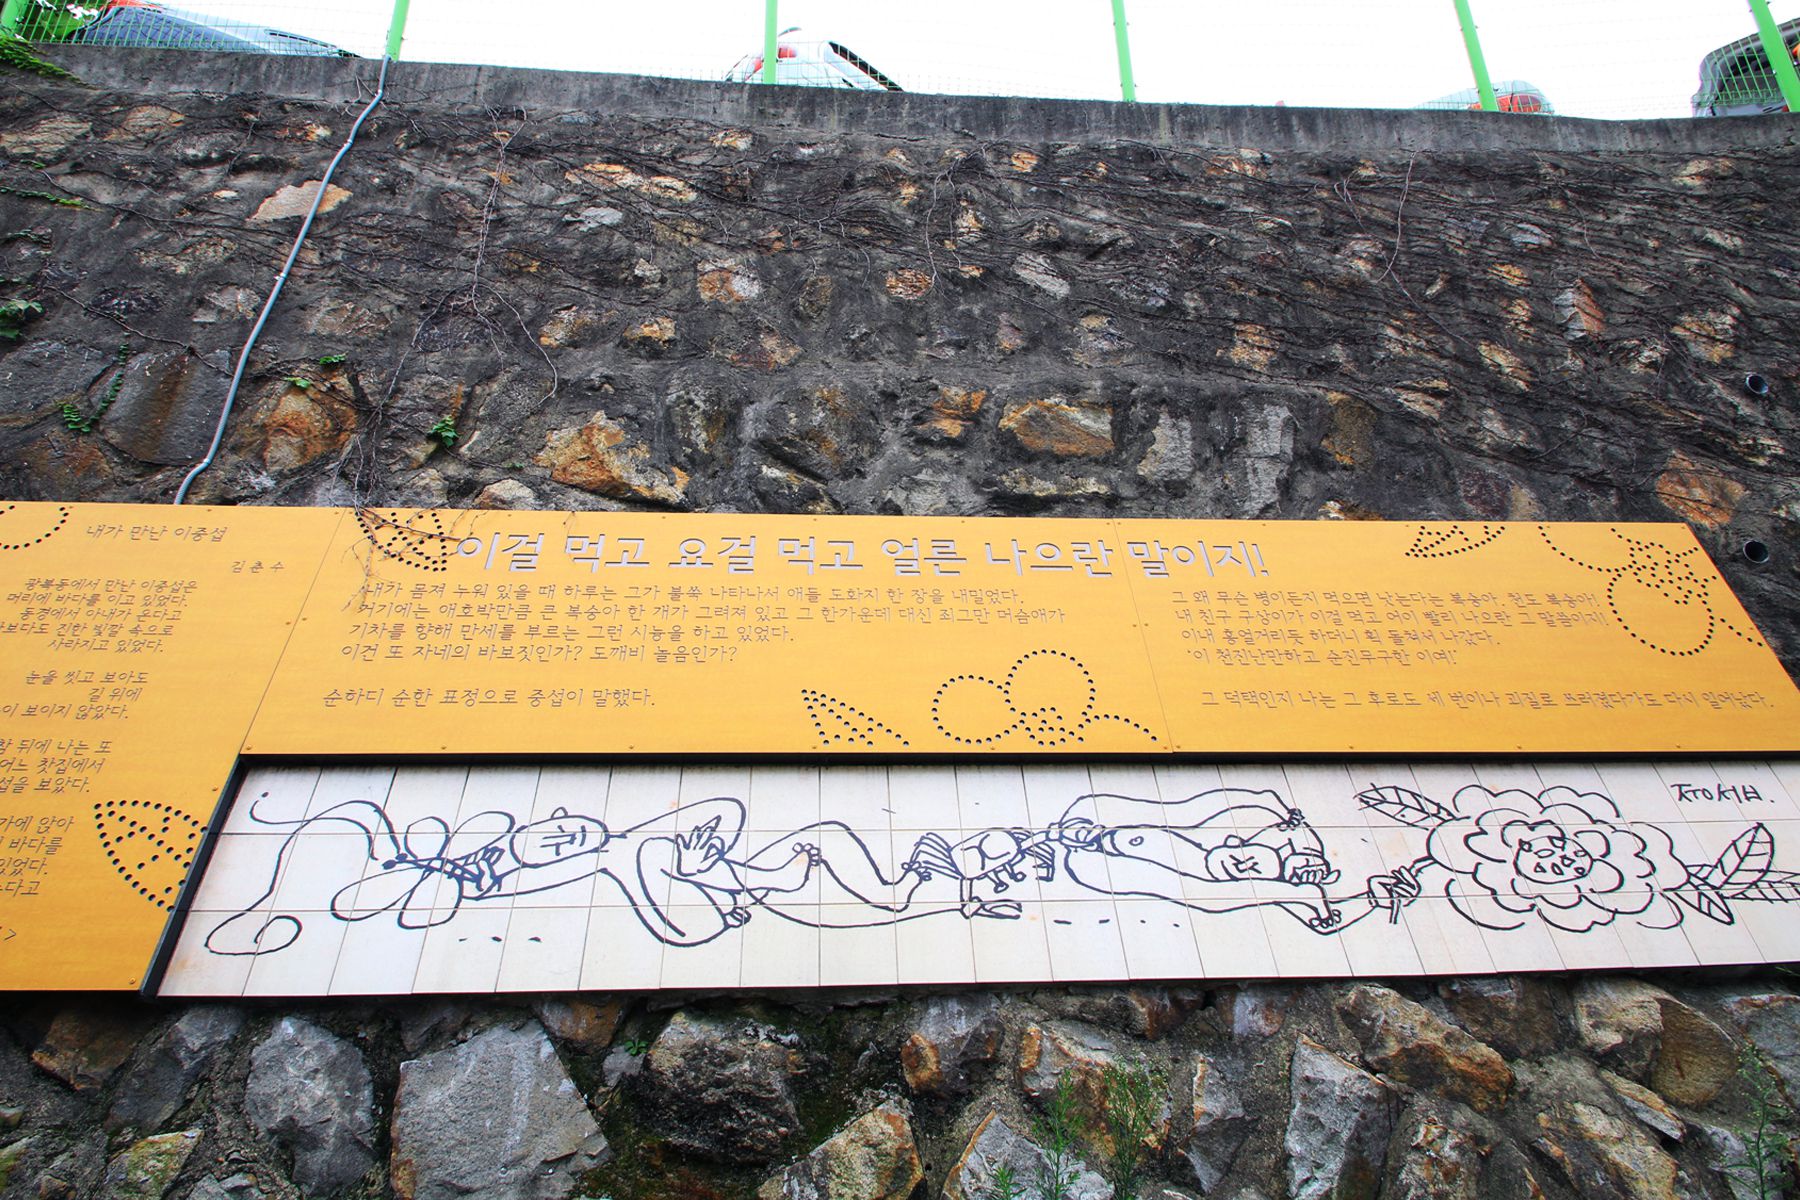 내가 만난 이중섭
김춘수
광복동에서 만난 이중섭은
머리에 바다를 이고 있었다.
동경에서 아내가 온다고
바보다도 진한 빛깔 속으로
사라지고 있었다.
눈을 씻고 보아도
길 위에
이 보이지 않았다.
뒤에 나는 또
어느 찻집에서
섭을 보았다.
가에 앉아
바다를
있었다.
다고
이걸 먹고 요걸 먹고 얼른 나으란 말이지!
내가 몸져 누워 있을 때 하루는 그가 불쑥 나타나서 애들 도화지 한 장을 내밀었다.
거기에는 애호박만큼 큰 복숭아 한 개가 그려져 있고 그 한가운데 대신 죄그만 머슴애가
기차를 향해 만세를 부르는 그런 시늉을 하고 있었다.
이건 또 자네의 바보짓인가? 도깨비 놀음인가?
순하디 순한 표정으로 중섭이 말했다.
그 왜 무슨 병이든지 먹으면 낫는다는 복숭아. 천도 복숭아!
내 친구 구상이가 이걸 먹고 어이 빨리 나으란 그 말씀이지!
이내 흥얼거리듯 하더니 휙 돌쳐서 나갔다.
'이 천진난만하고 순진무구한 이여!'
그 덕택인지 나는 그 후로도 세 번이나 괴질로 쓰러졌다가도 다시 일어났다.
ㅈㅜㅇㅅㅓㅂ.